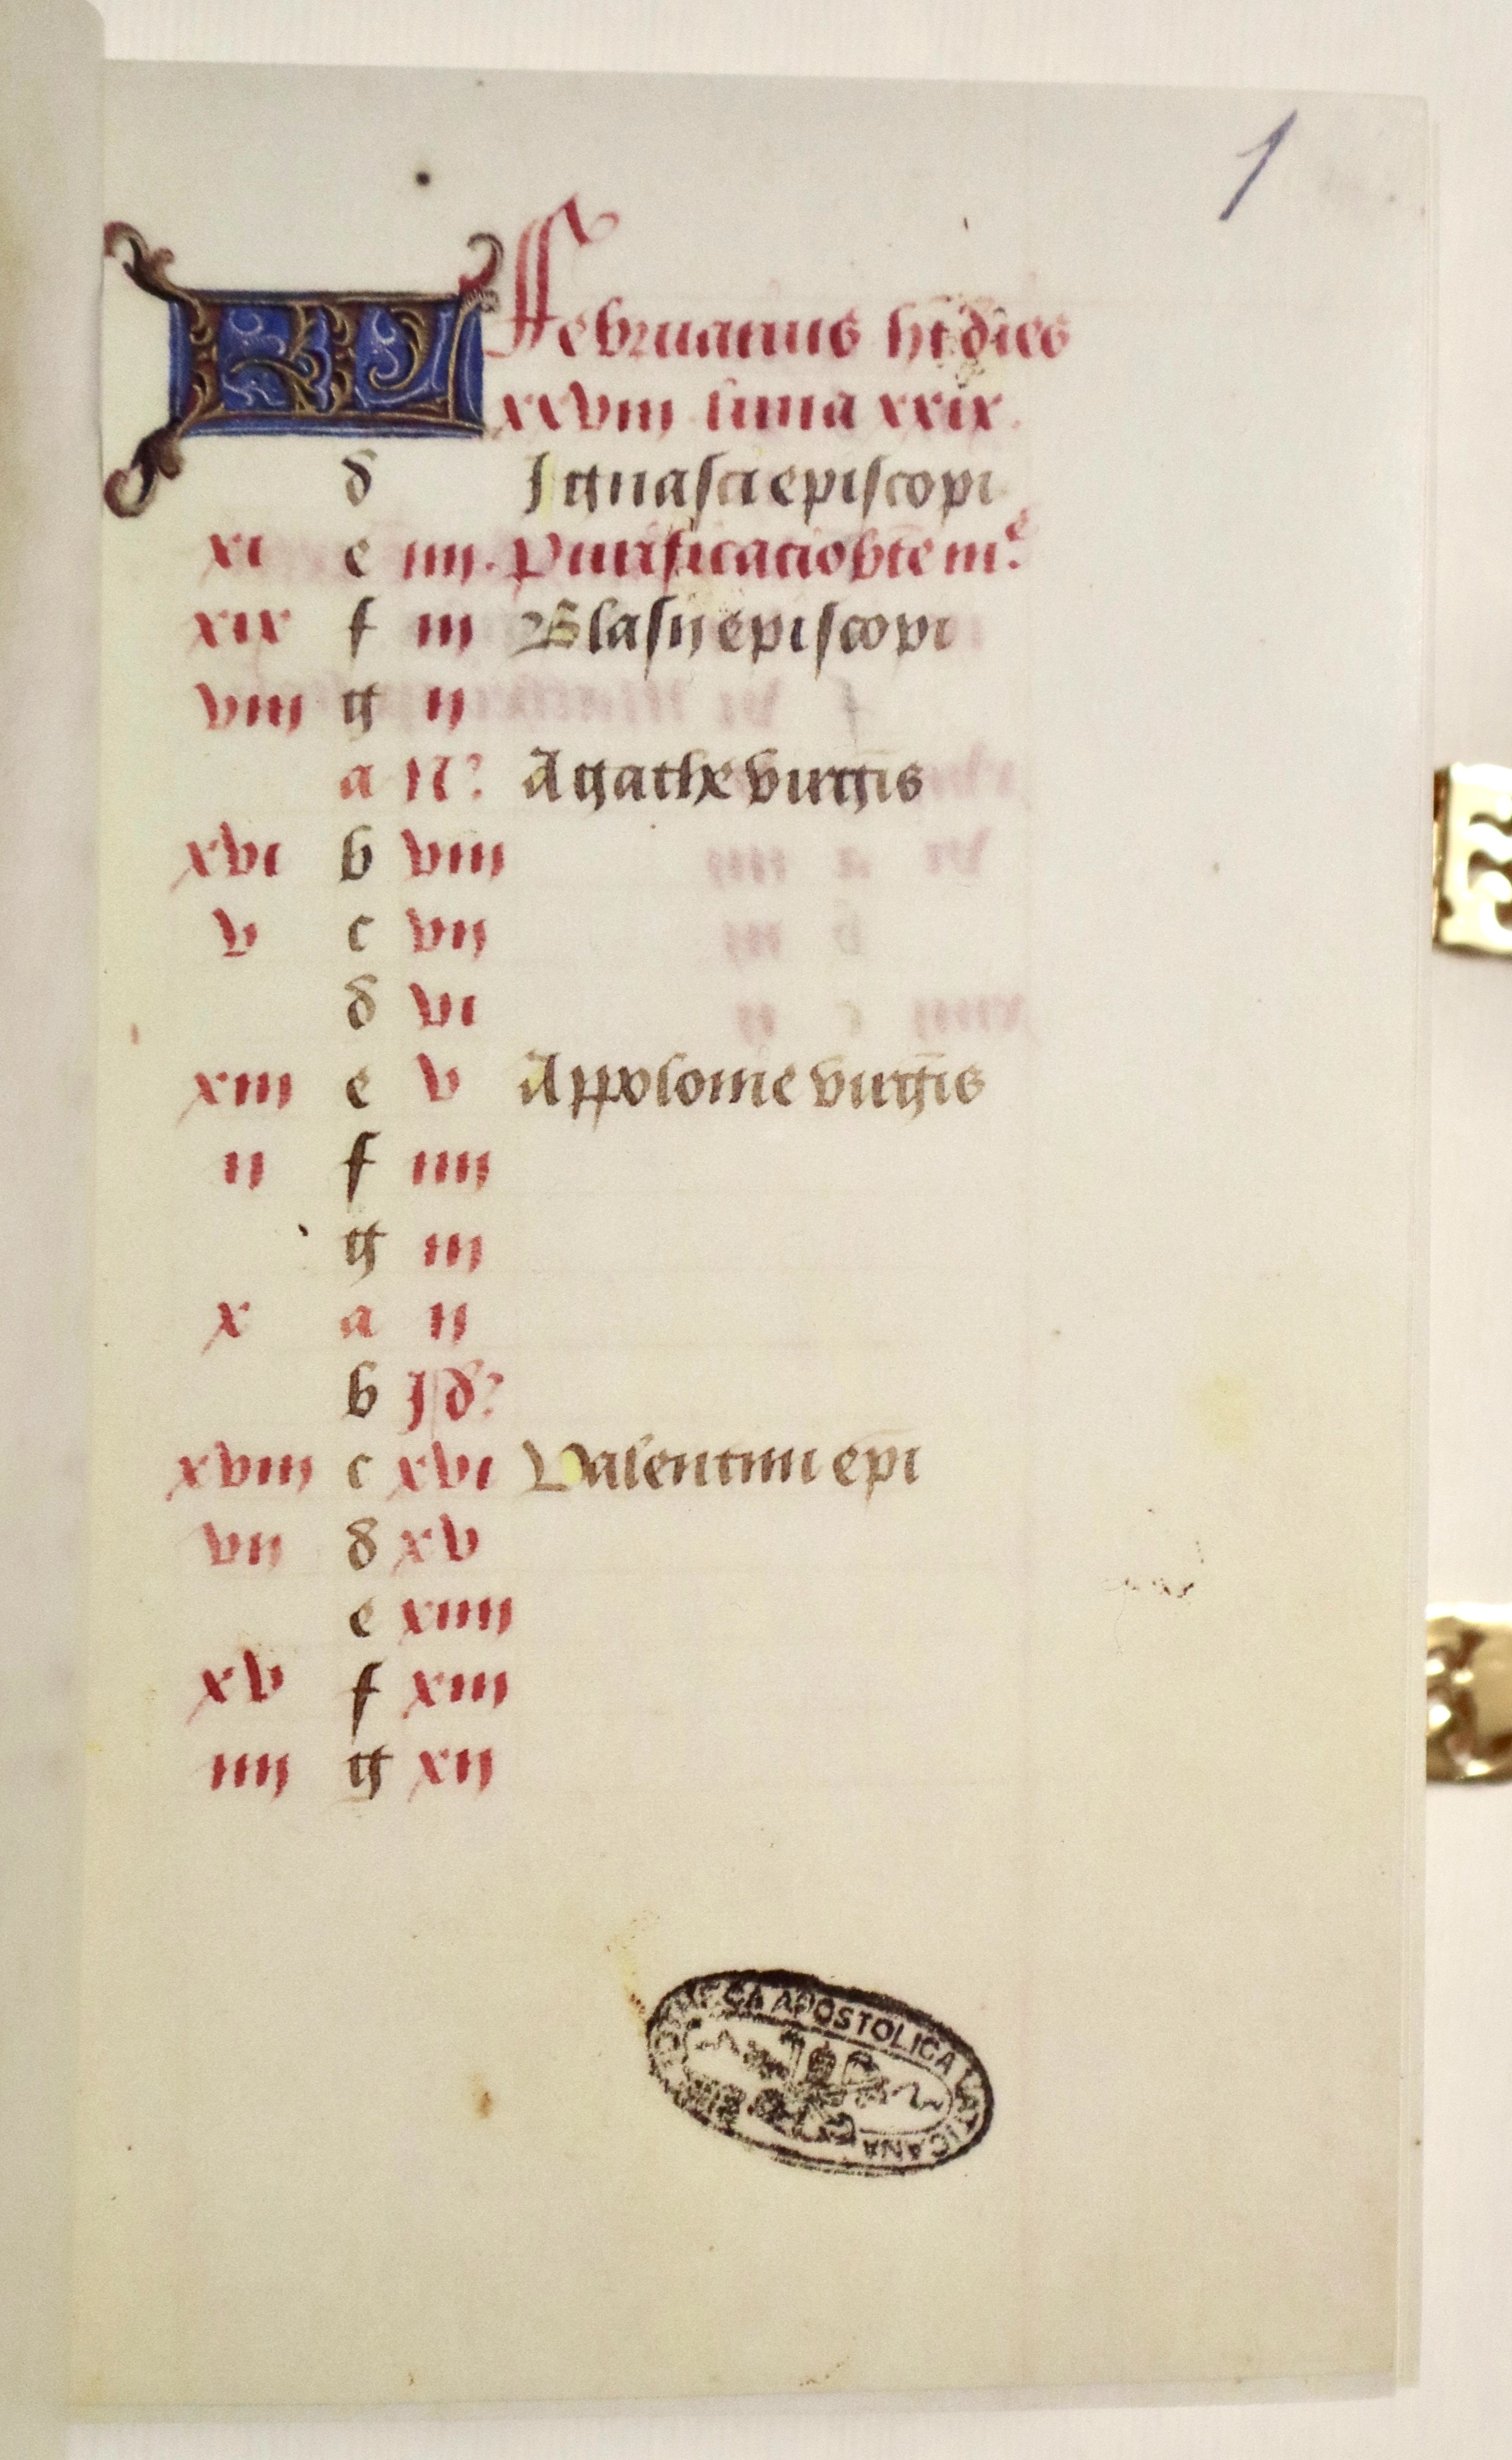 1
KL Februarius ht dies
xxviii luna xxix.
d Ignasci episcopi
xi e iiii. Purificatio bte me
xix f iii Blasii episcopi
viii g ii
a N? Agathe virgis
xvi b viii
v c vii
d vi
xiii e v Appolonie virgis
ii f iiii
g iii
x a ii
b Id?
xviii c xvi Valentini epi
vii d xv
e xiiii
xv f xiii
iiii g xii
APOSTOLICA VATICANA